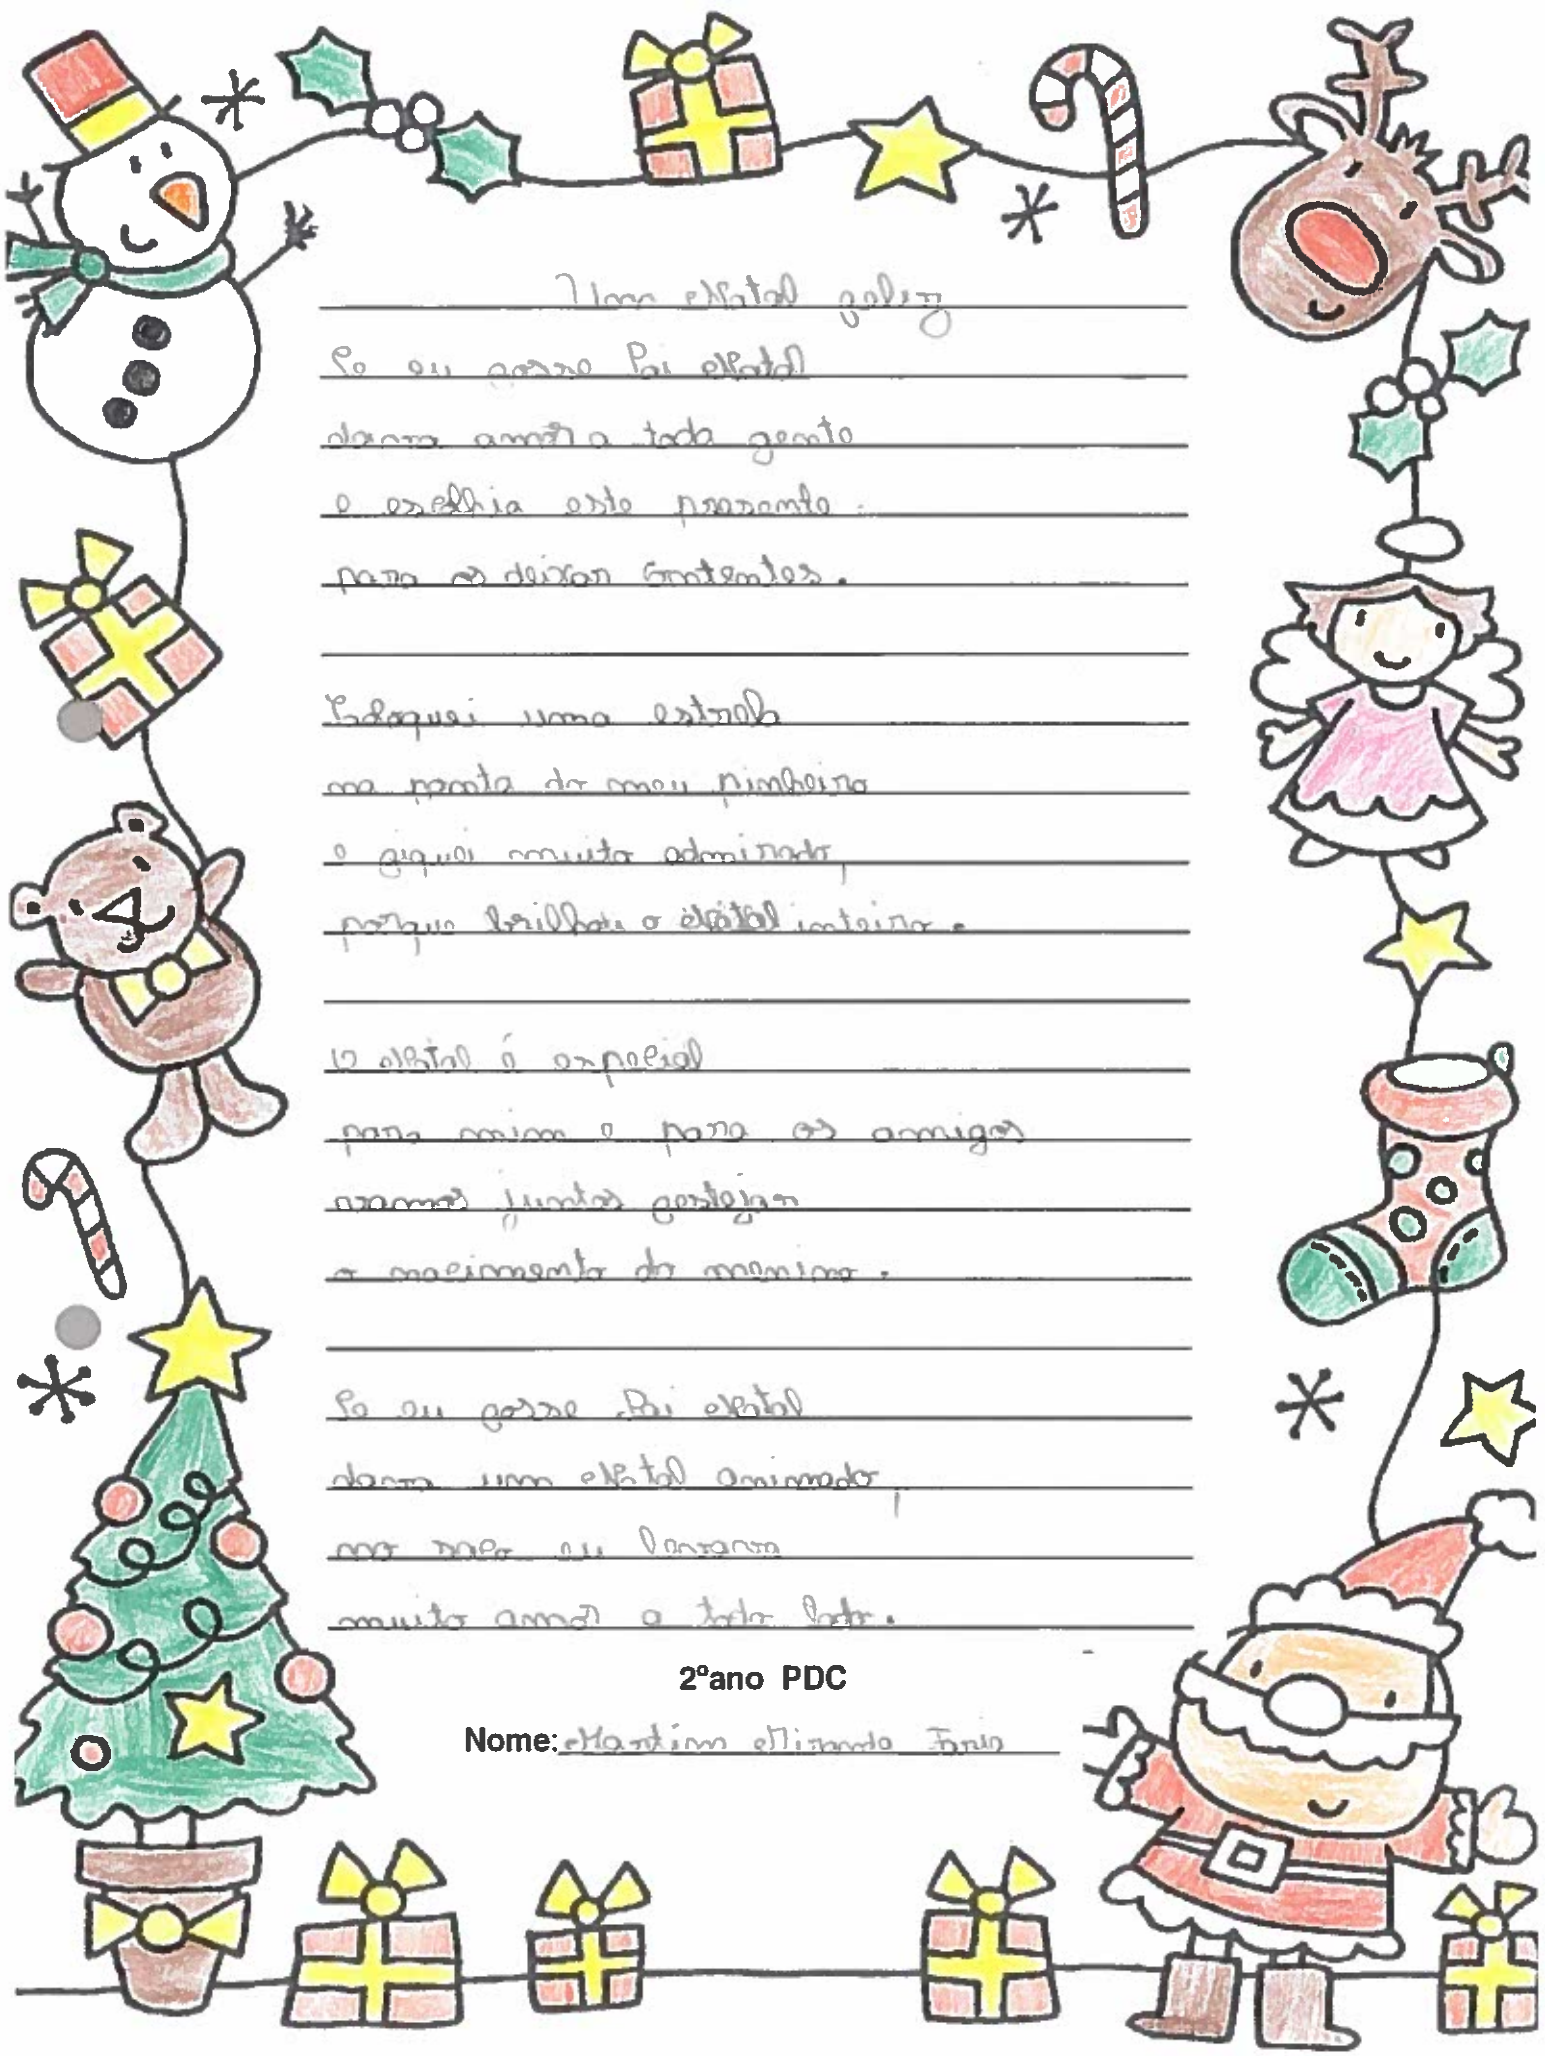 Um Natal feliz
Se eu fosse Pai Natal
dava amor a toda gente
e escolhia este presente
para os deixar contentes.
Coloquei uma estrela
na ponta do meu pinheiro
e fiquei muito admirado,
porque brilhou o Natal inteiro.
O Natal é especial
para mim e para os amigos
vamos juntos festejar
o nascimento do menino.
Se eu fosse Pai Natal
dava um Natal animado,
no saco eu levava
muito amor a todo lado.
2ºano PDC
Nome: Martim Miranda Faria